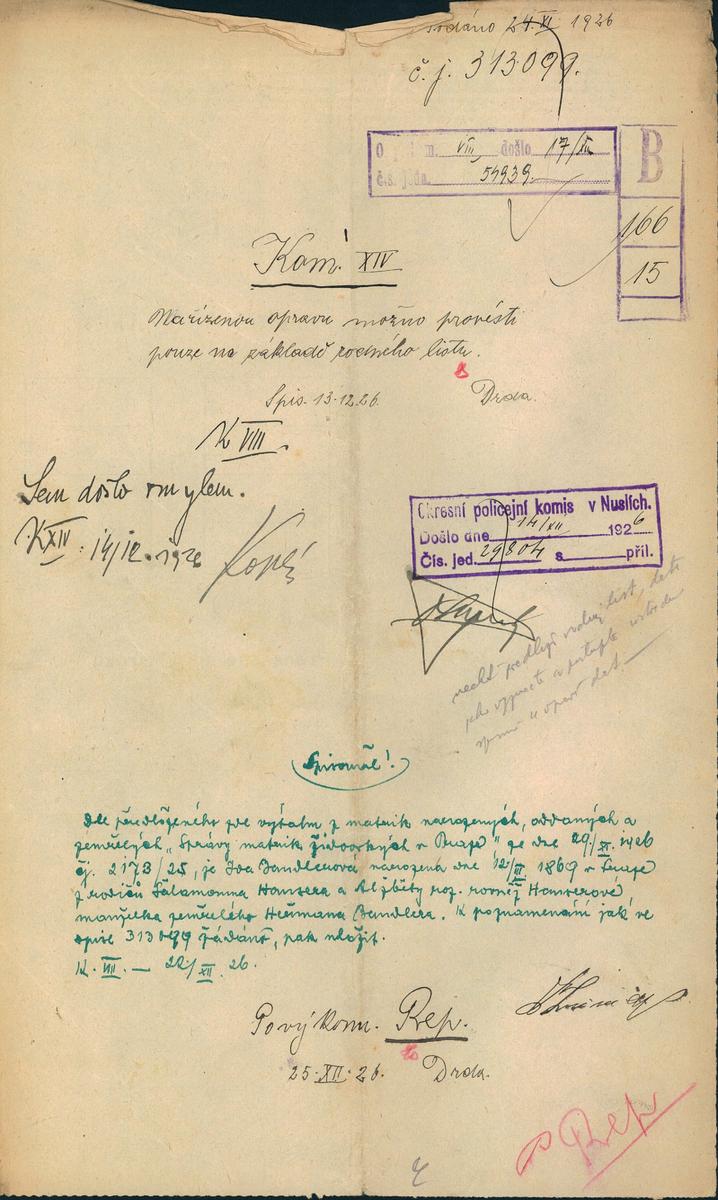 Podáno 24.XI 1926
č.j. 313099.
VIII došlo 17/XII
čís. jedn. 54939
B
166
15
Kom. XIV
Nařízenou opravu možno provésti
pouze na základě rodného listu.
Spis. 13.12.26. Drda.
K VIII.
Sem došlo omylem.
KXIV. 14/12. 1926
Okresní policejní komis v Nuslích.
Došlo dne 14/XII 1926
Čís. jed. 29804 s příl.
nechť předloží rodný list, data
Spisovně!
Dle předloženého zde výtahu z matrik narozených, oddaných a
zemřelých "Správy matrik židovských v Praze" ze dne 29./XI. 1926
čj. 2173/25, je Ida Bandlerová narozena dne 12/XI 1869 v Praze
z rodičů Šalamouna Hansera a Alžběty roz. rovněž Hanserové
manželka zemřelého Heřmana Bandlera. K poznamenání jak ve
spise 313099 žádáno, pak uložit.
K. VIII. — 22/XII. 26.
Po výkonu. Rep.
25.XII.26. Drda.
Rep